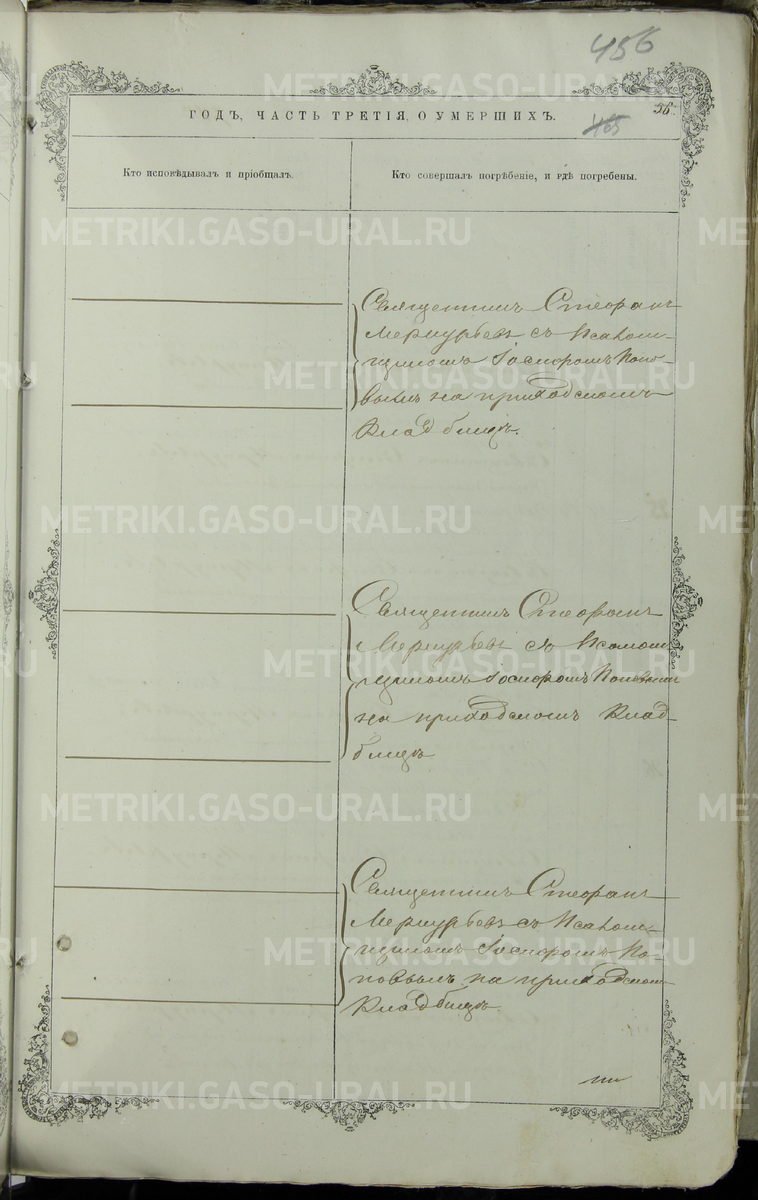 456
ГОДЪ, ЧАСТЬ ТРЕТІЯ, О УМЕРШИХЪ.
56.
465
Кто исповѣдывалъ и пріобщалъ.
Кто совершалъ погрѣбеніе, и гдѣ погребены.
Священникъ Стефанъ
Меркурьевъ съ Псалом-
щикомъ Попо-
вымъ на приходскомъ
Кладбищѣ.
Священникъ Стефанъ
Меркурьевъ съ Псалом-
щикомъ Поповымъ
на приходскомъ Клад-
бищѣ
Священникъ Стефанъ
Меркурьевъ съ Псалом-
щикомъ По-
повымъ на приходскомъ
Кладбищѣ.
METRIKI.GASO-URAL.RU